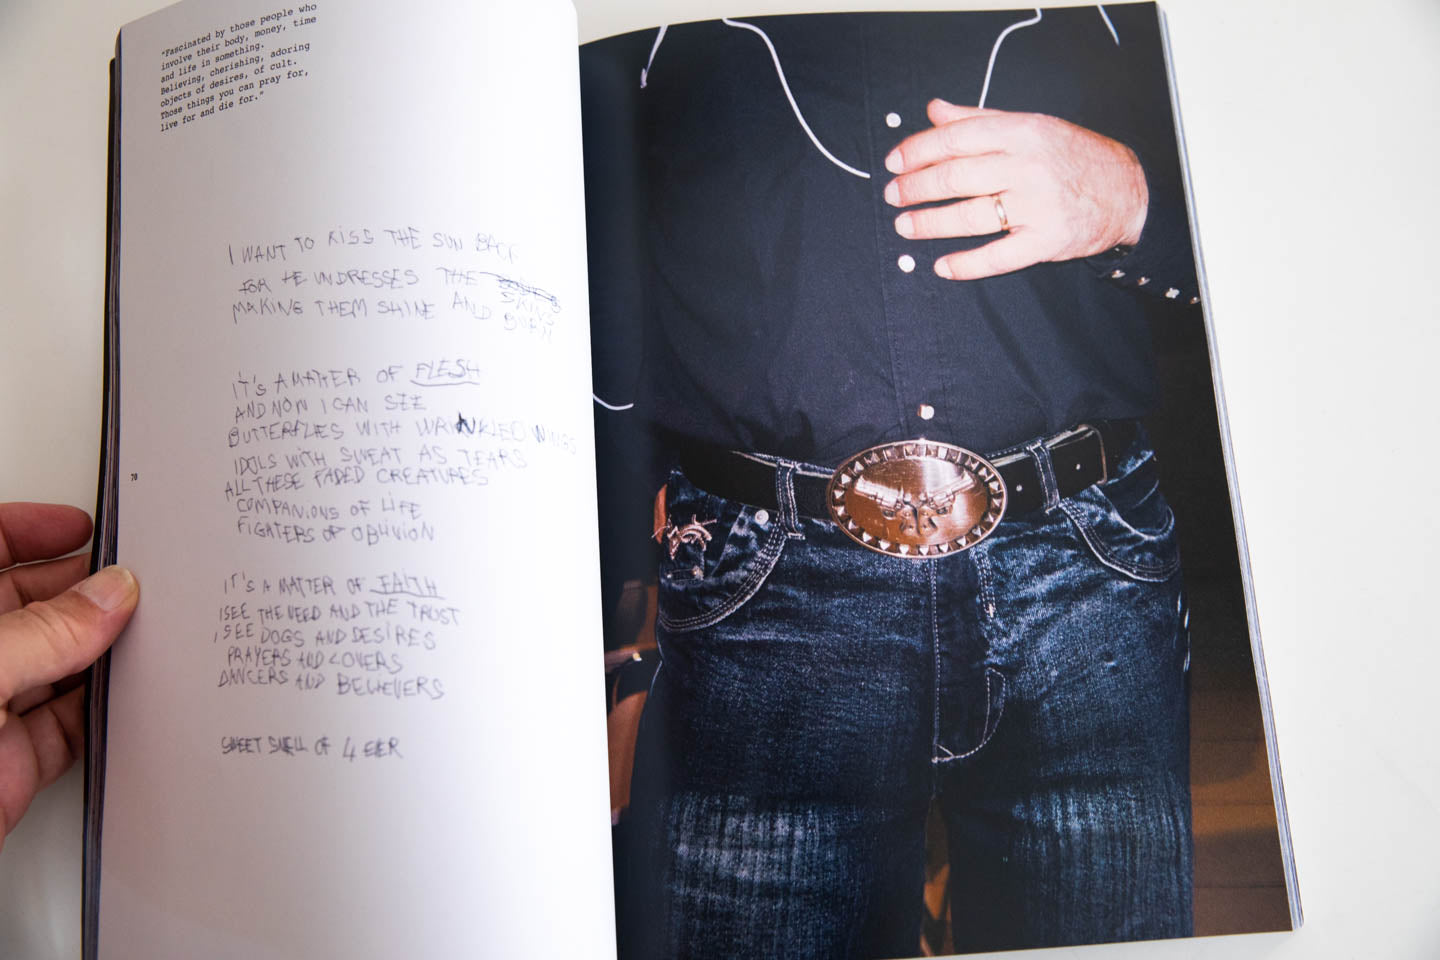 "Fascinated by those people who
involve their body, money, time
and life in something.
Believing, cherishing, adoring
objects of desires, of cult.
Those things you can pray for,
live for and die for."
I WANT TO KISS THE SUN BACK
FOR HE UNDRESSES THE
SKINS
MAKING THEM SHINE AND BURN
IT'S A MATTER OF FLESH
AND NOW I CAN SEE
BUTTERFLIES WITH WRINKLED WINGS
IDOLS WITH SWEAT AS TEARS
ALL THESE FADED CREATURES
COMPANIONS OF LIFE
FIGHTERS OF OBLIVION
IT'S A MATTER OF FAITH
I SEE THE NEED AND THE TRUST
I SEE DOGS AND DESIRES
PRAYERS AND LOVERS
DANCERS AND BELIEVERS
SWEET SMELL OF 4 EVER
70